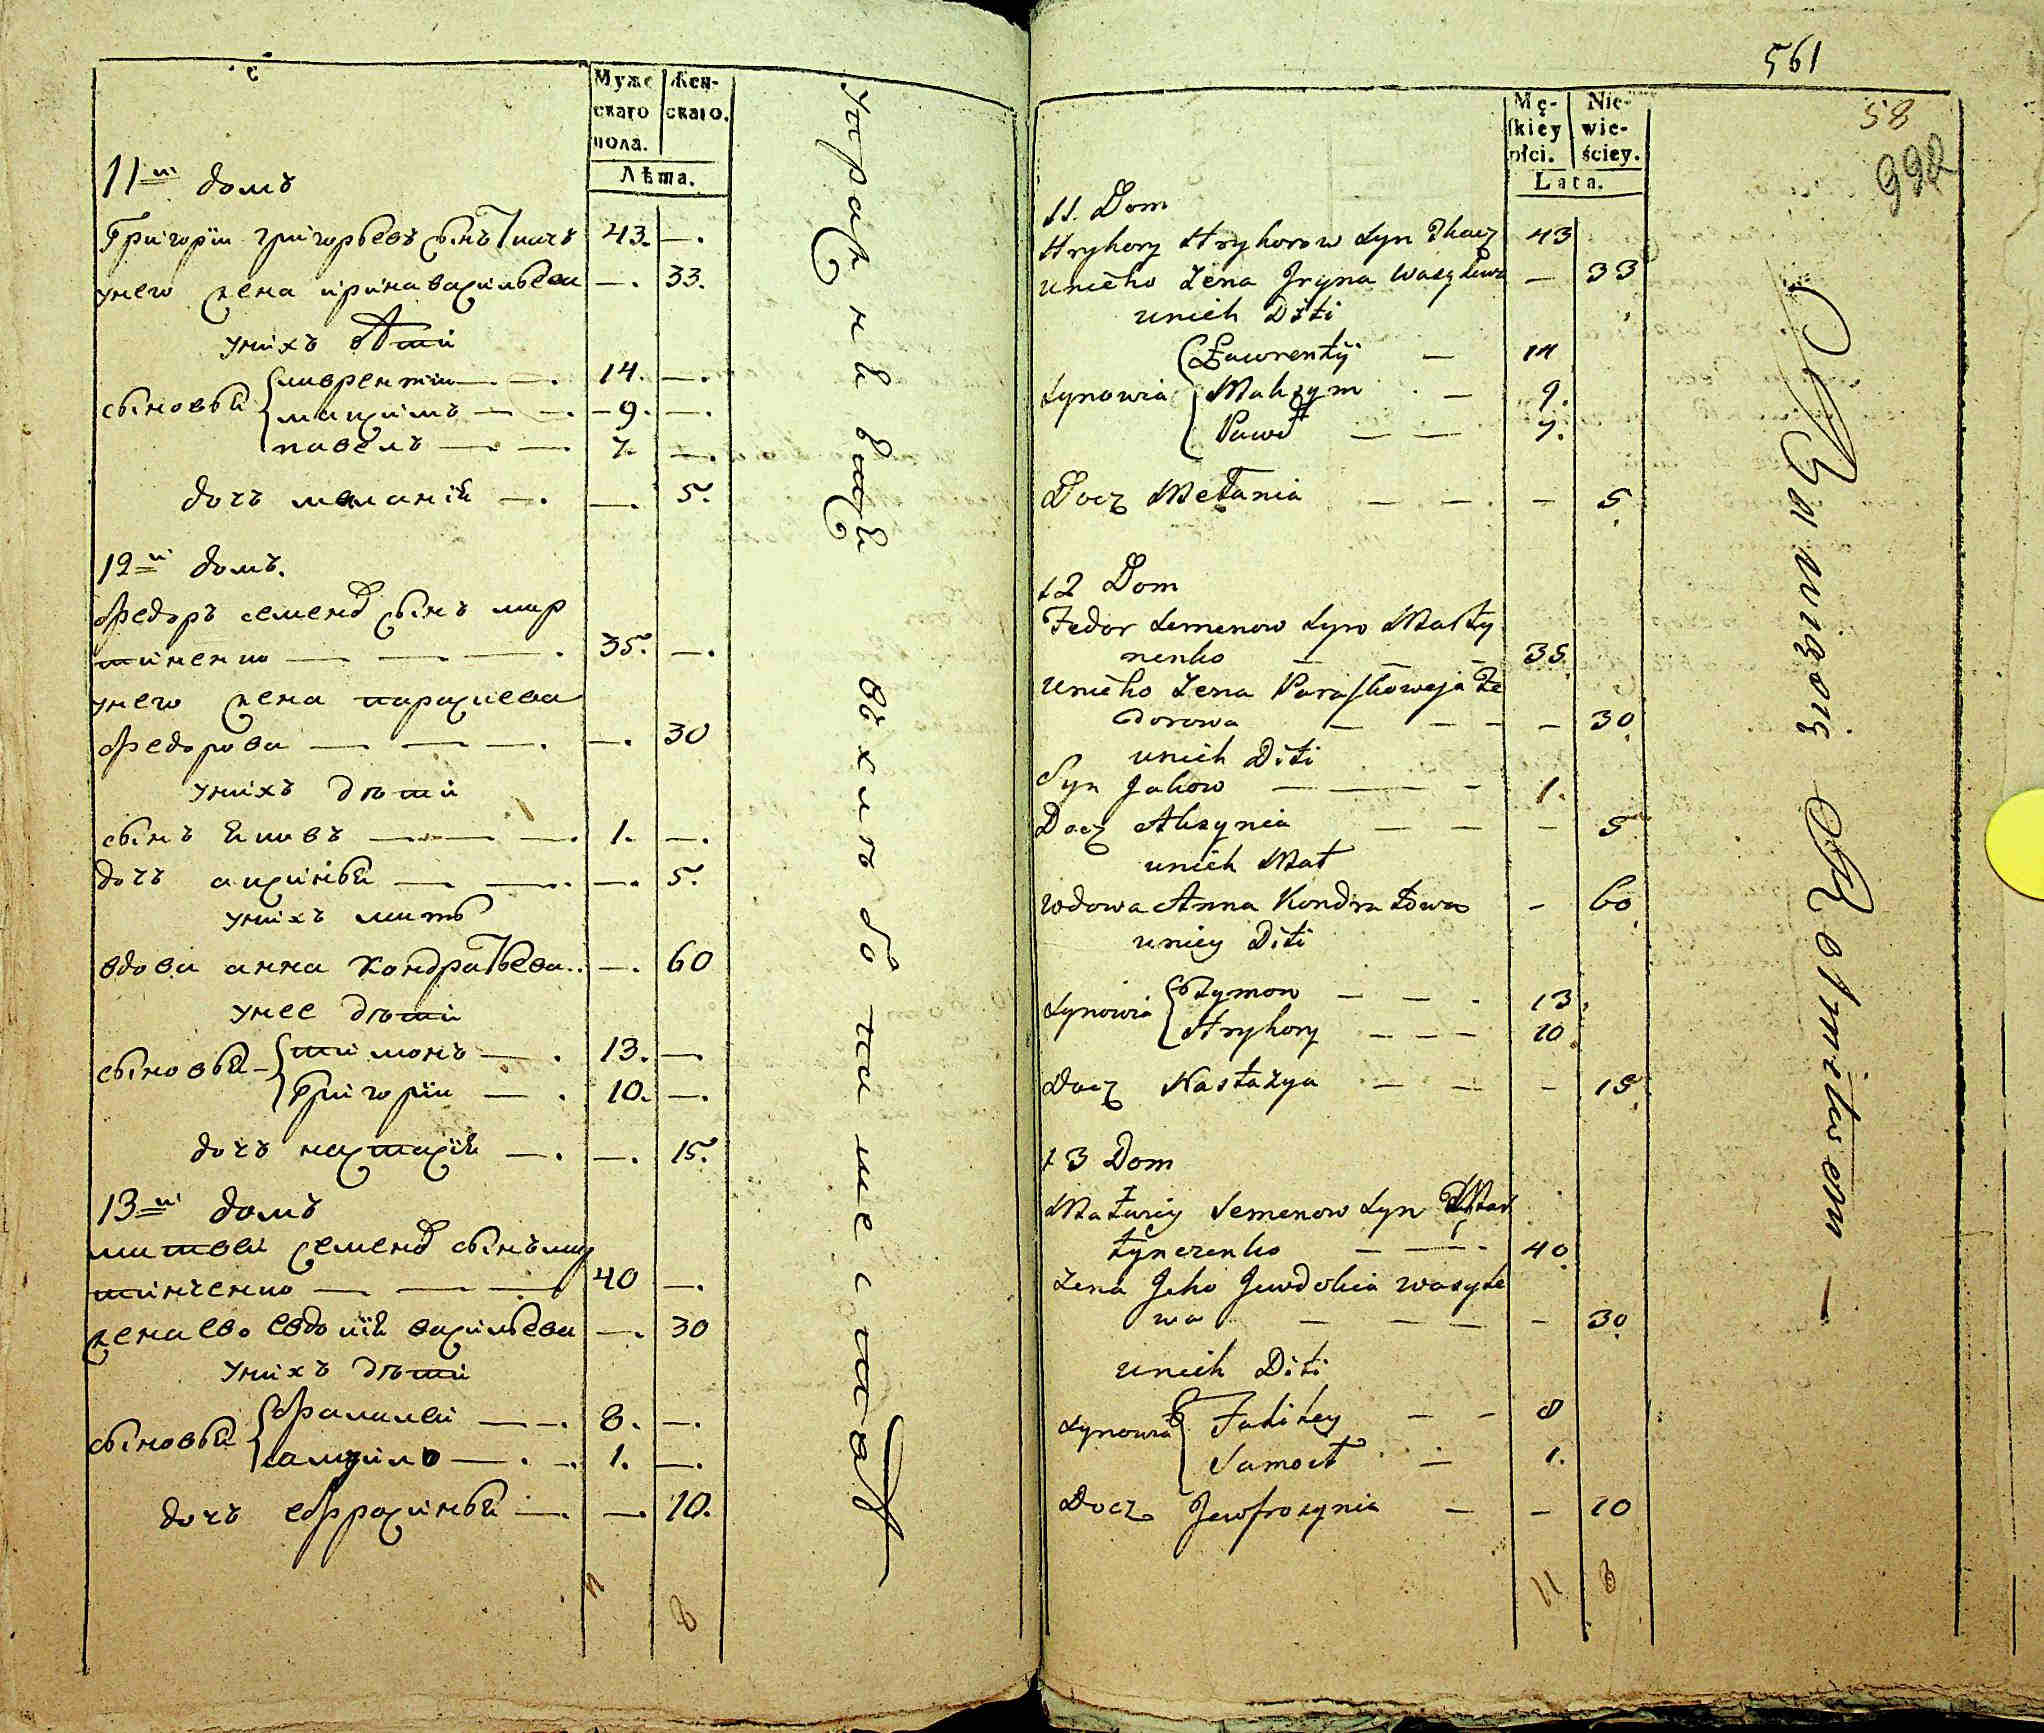 Муже
скаго
пола.
Жен-
скаго.
Лѣта.
11й домъ
Григорїи григорьевъ сынъ Ткачъ 43. —.
унего жена ирина васильева —. 33.
унихъ дѣти
сыновья
лаврентiи — —. 14. —.
максимъ — —. — 9. —.
павелъ — —. 7. —.
дочь маланїя —. —. 5.
12й домъ.
Федоръ семенов сынъ мар
тиненко — — —. 35. —.
унего жена параскева
федорова — — —. —. 30
унихъ дѣти
сынъ яковъ — — —. 1. —.
дочь аксинья — —. —. 5.
унихъ мать
вдова анна Кондратьева.. —. 60
унее дѣти
сыновья
тимонъ —. 13. —
Григорїи —. 10. —.
дочь настасїя —. —. 15.
13й домъ
матвеи семенов сынъ мар
тинченко — — — 40 —.
жена ево евдокїя васильева —. 30
унихъ дѣти
сыновья
фалалеи — —. 8. —.
самуило —. —. 1. —.
дочь ефросинья —. —. 10.
11 8
въ хлѣбопашествѣ
561
58
992
Mę-
skiey
płci.
Nie-
wie-
ściey.
Lata.
11. Dom
Hryhory Hryhorow Syn Tkacz 43
unieho Zena Iryna Wasylewa — 33
unich Diti
Synowia
Ławrentÿ — 14
Makzym — 9.
Paweł — — 7.
Docz Mełania — — — 5
12 Dom
Fedor Semenow Syn Marty
nenko — — — 35.
unieho Zena Paraskoweja Fe
dorowa — — — — 30.
unich Diti
Syn Jakow — — — 1.
Docz Aksynia — — — 5
unich Mat
wdowa Anna Kondratowa — 60
uniey Diti
Synowia
Tymon — — . 13.
Hryhory — — — 10.
Docz Nastazya — — — 15.
13 Dom
Matwiy Semenow Syn Mar
tynczenko — — — 40.
Zena Jeho Jewdokia Wasyle
wa — — — — 30.
unich Diti
Synowia
Faliley — — 8
Samoił — 1.
Docz Jewfrozynia — — 10
11 8